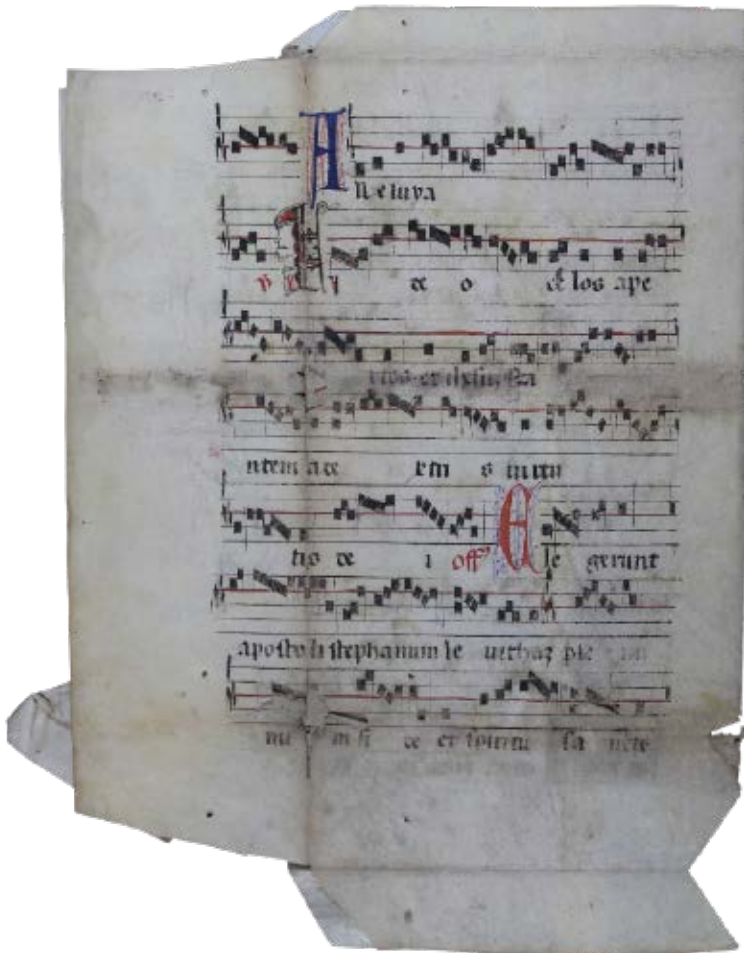 Alleluya
V Vi de o celos ape
rtos et ihesum sta
ntem a de xtri s uirtu
tis de i off' Ele gerunt
apostoli stephanum le uitam ple
nu m fi de et spiritu sa ncto